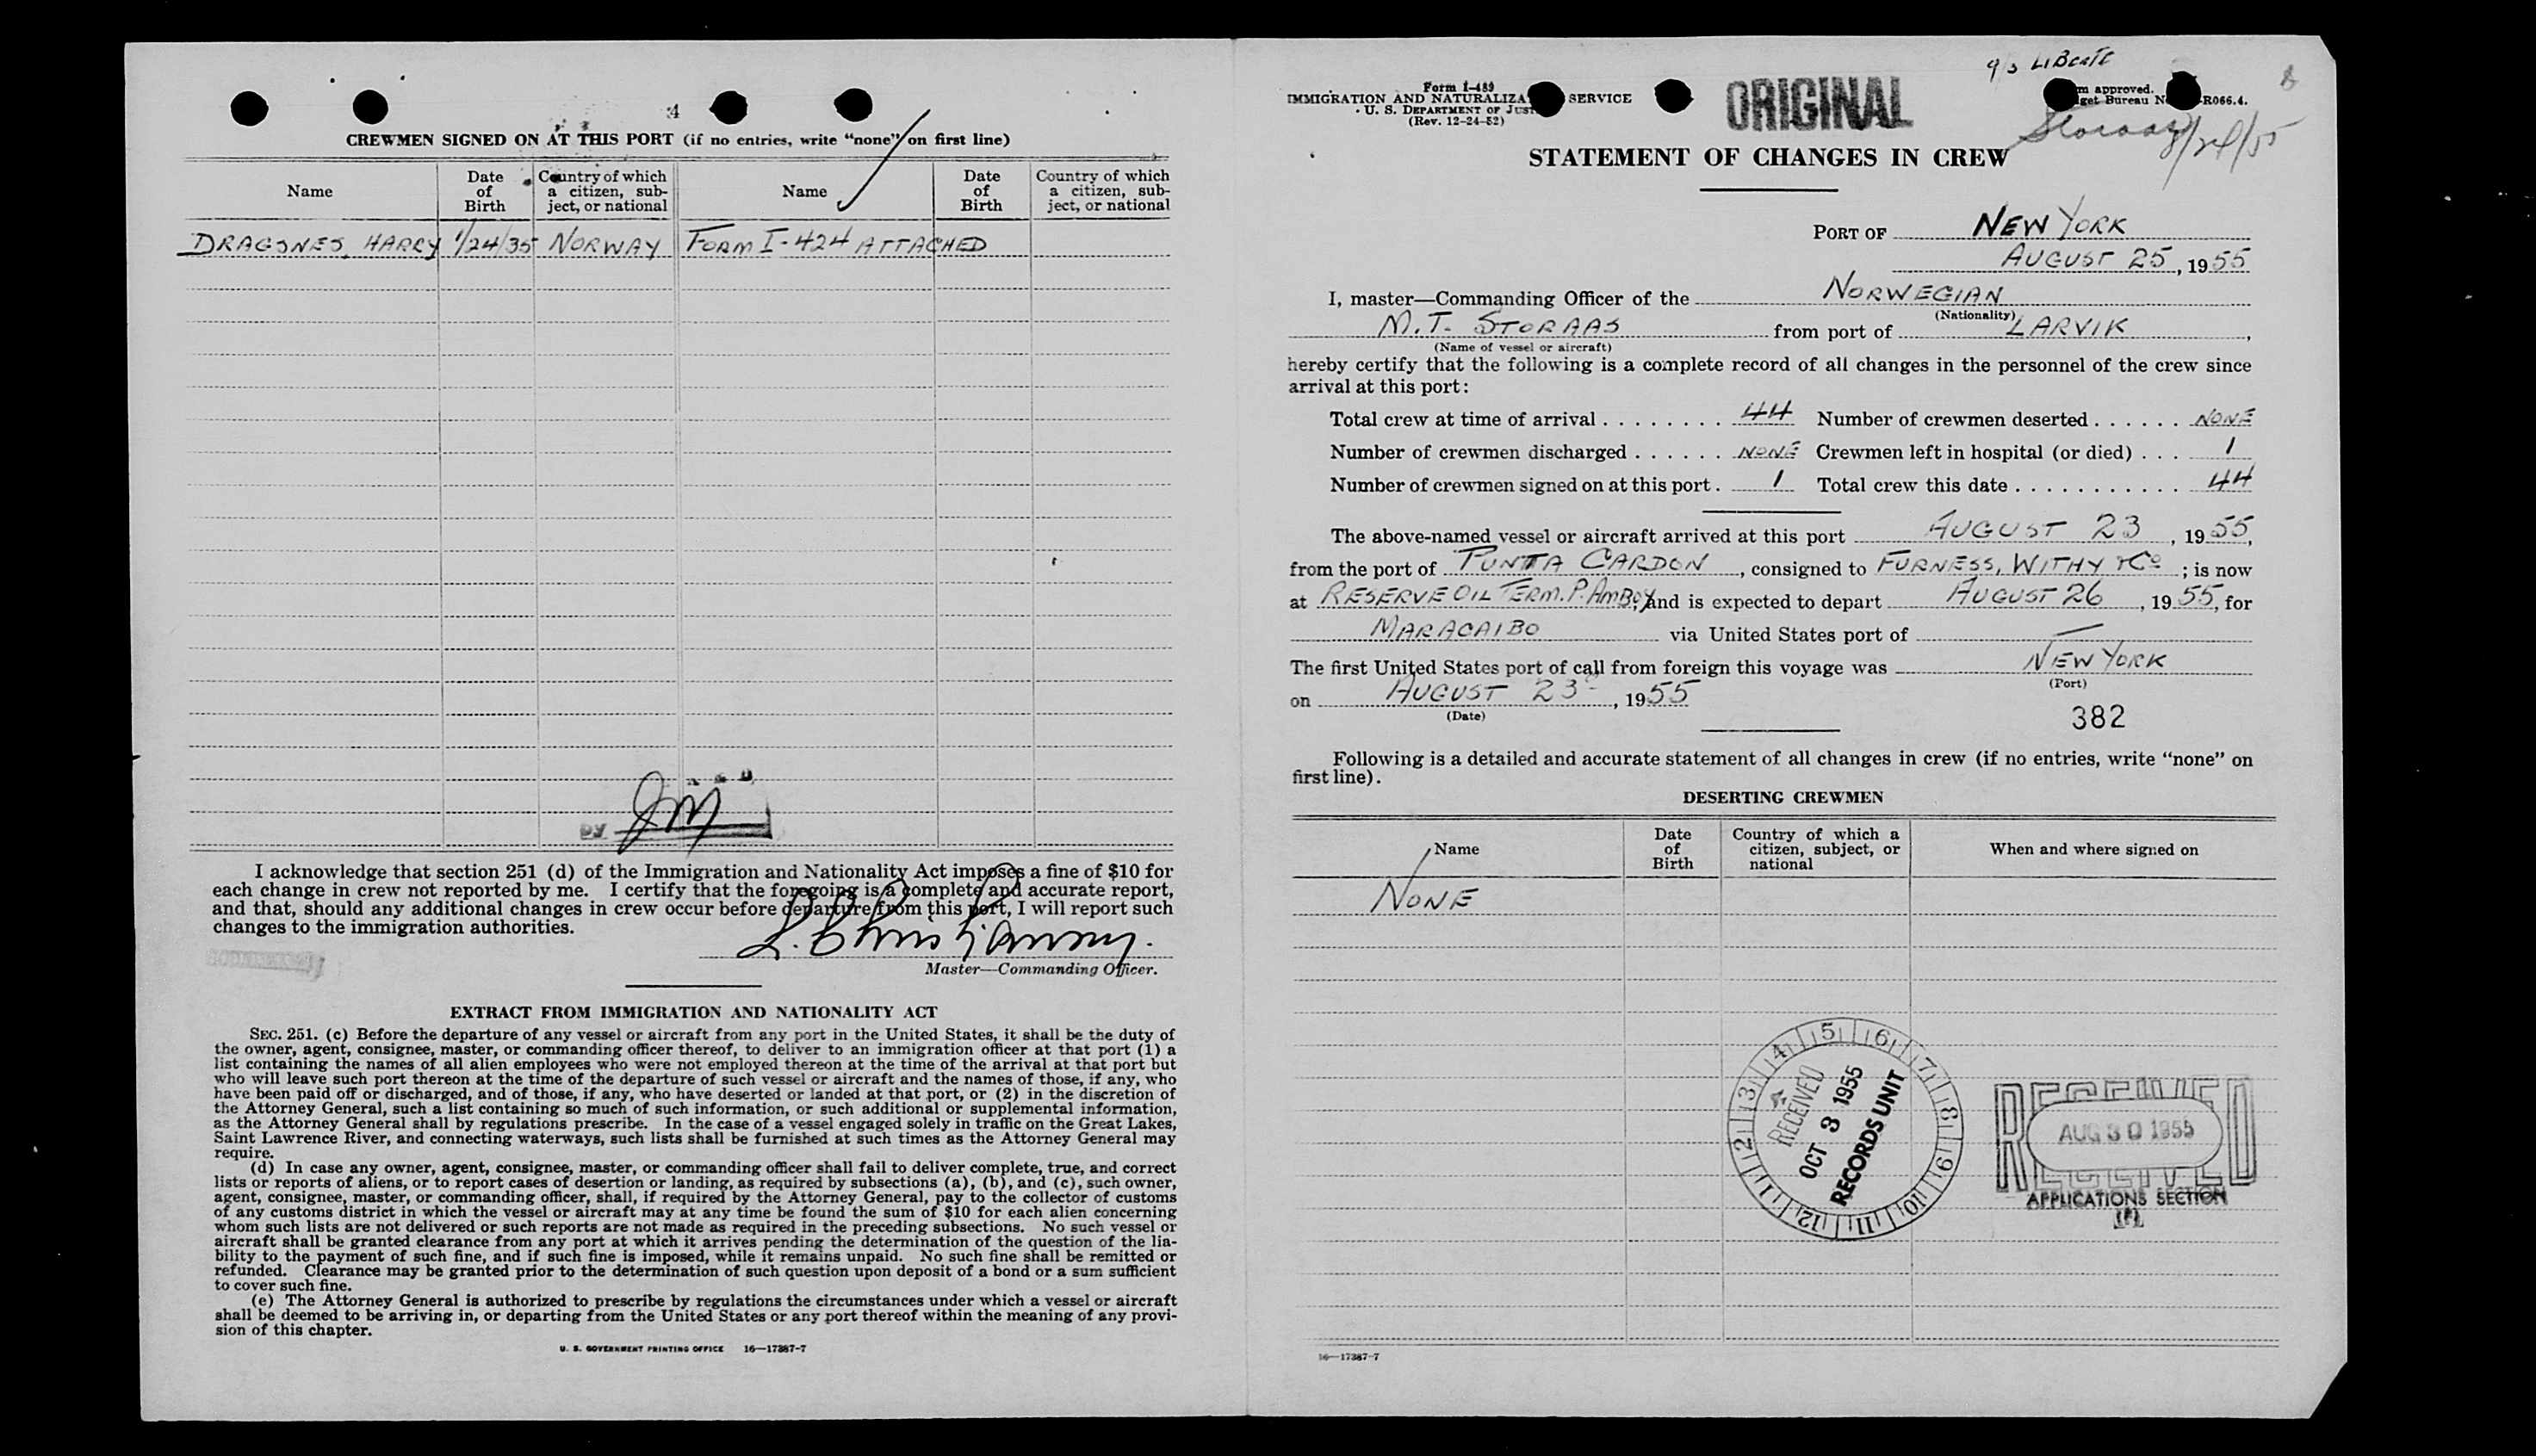 4
CREWMEN SIGNED ON AT THIS PORT (if no entries, write “none” on first line)
Name Date of Birth Country of which a citizen, subject, or national Name Date of Birth Country of which a citizen, subject, or national
DRAGSNES, HARRY 1/24/35 NORWAY FORM I-424 ATTACHED
by JM
I acknowledge that section 251 (d) of the Immigration and Nationality Act imposes a fine of $10 for
each change in crew not reported by me. I certify that the foregoing is a complete and accurate report,
and that, should any additional changes in crew occur before departure from this port, I will report such
changes to the immigration authorities.
Master—Commanding Officer.
EXTRACT FROM IMMIGRATION AND NATIONALITY ACT
SEC. 251. (c) Before the departure of any vessel or aircraft from any port in the United States, it shall be the duty of
the owner, agent, consignee, master, or commanding officer thereof, to deliver to an immigration officer at that port (1) a
list containing the names of all alien employees who were not employed thereon at the time of the arrival at that port but
who will leave such port thereon at the time of the departure of such vessel or aircraft and the names of those, if any, who
have been paid off or discharged, and of those, if any, who have deserted or landed at that port, or (2) in the discretion of
the Attorney General, such a list containing so much of such information, or such additional or supplemental information,
as the Attorney General shall by regulations prescribe. In the case of a vessel engaged solely in traffic on the Great Lakes,
Saint Lawrence River, and connecting waterways, such lists shall be furnished at such times as the Attorney General may
require.
(d) In case any owner, agent, consignee, master, or commanding officer shall fail to deliver complete, true, and correct
lists or reports of aliens, or to report cases of desertion or landing, as required by subsections (a), (b), and (c), such owner,
agent, consignee, master, or commanding officer, shall, if required by the Attorney General, pay to the collector of customs
of any customs district in which the vessel or aircraft may at any time be found the sum of $10 for each alien concerning
whom such lists are not delivered or such reports are not made as required in the preceding subsections. No such vessel or
aircraft shall be granted clearance from any port at which it arrives pending the determination of the question of the lia-
bility to the payment of such fine, and if such fine is imposed, while it remains unpaid. No such fine shall be remitted or
refunded. Clearance may be granted prior to the determination of such question upon deposit of a bond or a sum sufficient
to cover such fine.
(e) The Attorney General is authorized to prescribe by regulations the circumstances under which a vessel or aircraft
shall be deemed to be arriving in, or departing from the United States or any port thereof within the meaning of any provi-
sion of this chapter.
U. S. GOVERNMENT PRINTING OFFICE 16—17387-7
Form I-489
IMMIGRATION AND NATURALIZA SERVICE
U. S. DEPARTMENT OF JUST
(Rev. 12-24-52)
ORIGINAL
LIBERTE
m approved.
get Bureau N R066.4.
Storaas 8/24/55
STATEMENT OF CHANGES IN CREW
PORT OF NEW YORK
AUGUST 25, 1955
I, master—Commanding Officer of the NORWEGIAN
(Nationality)
M.T. STORAAS from port of LARVIK,
(Name of vessel or aircraft)
hereby certify that the following is a complete record of all changes in the personnel of the crew since
arrival at this port:
Total crew at time of arrival 44 Number of crewmen deserted NONE
Number of crewmen discharged NONE Crewmen left in hospital (or died) 1
Number of crewmen signed on at this port 1 Total crew this date 44
The above-named vessel or aircraft arrived at this port AUGUST 23, 1955,
from the port of PUNTA CARDON, consigned to FURNESS, WITHY & Co; is now
at RESERVE OIL TERM. P. AMBOY, and is expected to depart AUGUST 26, 1955, for
MARACAIBO via United States port of —
The first United States port of call from foreign this voyage was NEW YORK
(Port)
on AUGUST 23, 1955
(Date)
382
Following is a detailed and accurate statement of all changes in crew (if no entries, write “none” on
first line).
DESERTING CREWMEN
Name Date of Birth Country of which a citizen, subject, or national When and where signed on
NONE
1 2 3 4 5 6 7 8 9 10 11 12
RECEIVED
OCT 3 1955
RECORDS UNIT
RECEIVED
AUG 30 1955
RECEIVED
APPLICATIONS SECTION
16—17387-7